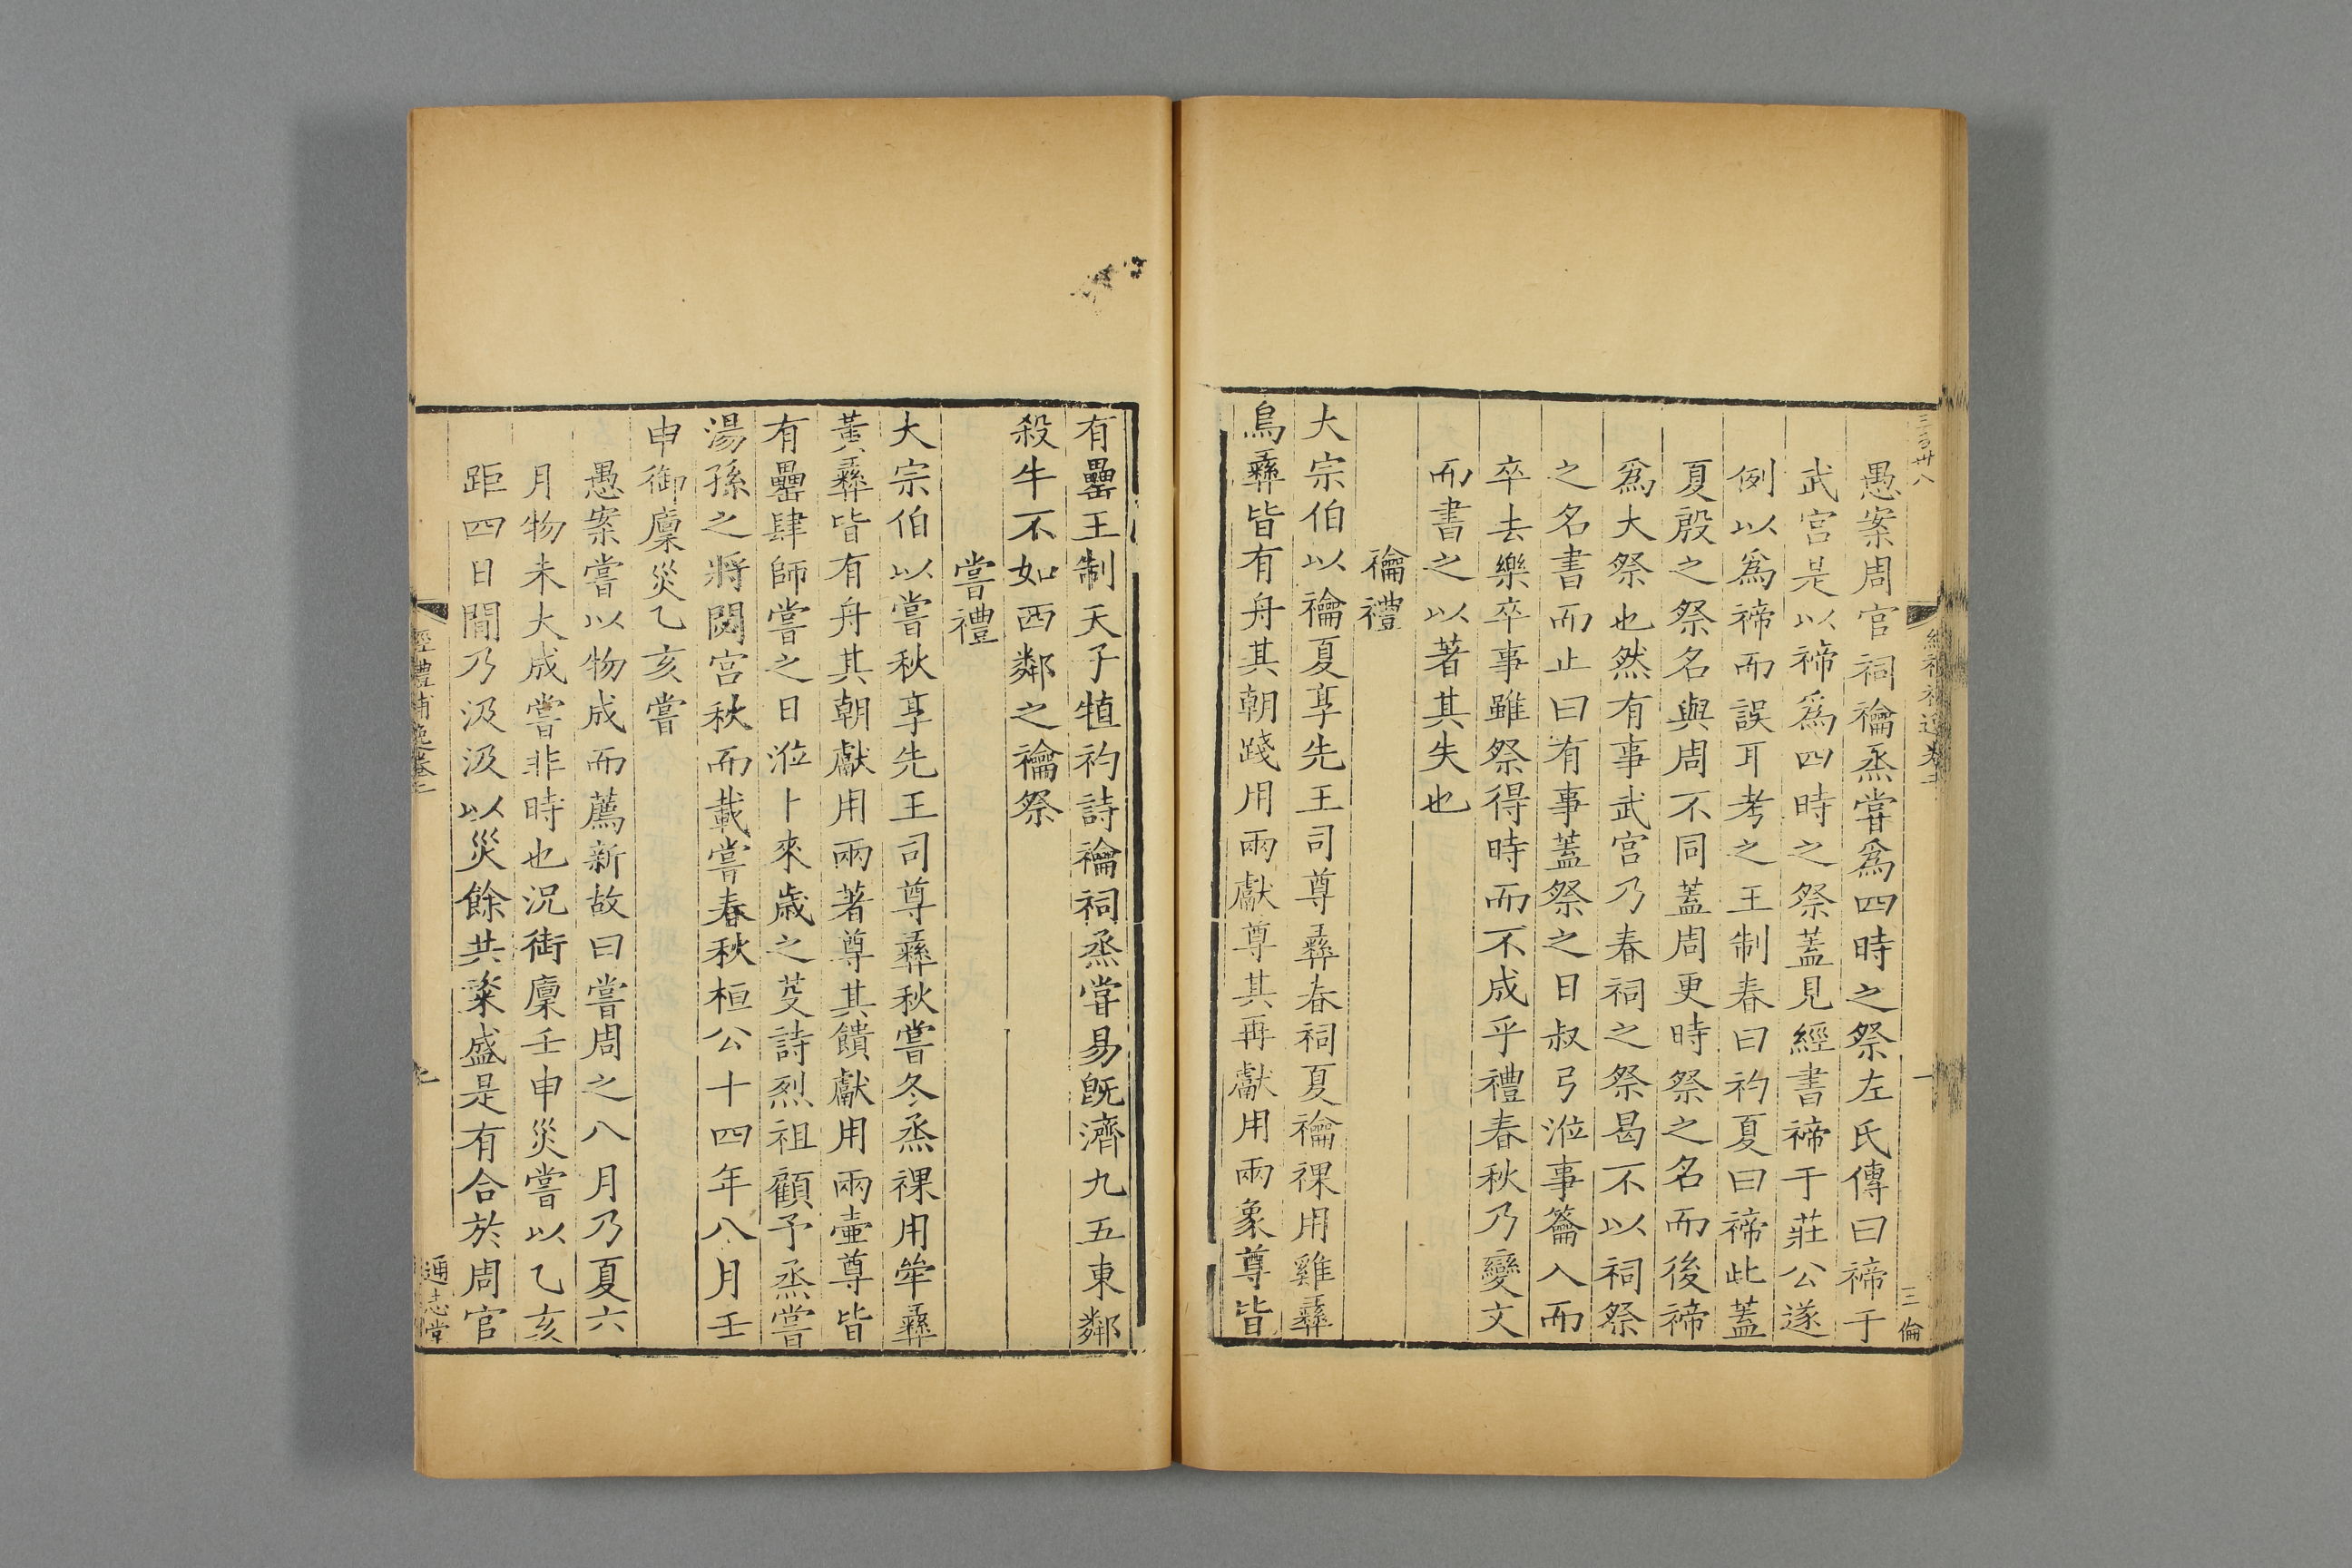 愚案周官祠禴烝甞爲四時之祭左氏傳曰禘于
武宮是以禘爲四時之祭蓋見經書禘于莊公遂
例以爲禘而誤耳考之王制春曰礿夏曰禘此蓋
夏殷之祭名與周不同蓋周更時祭之名而後禘
爲大祭也然有事武宮乃春祠之祭曷不以祠祭
之名書而止曰有事蓋祭之日叔弓涖事籥入而
卒去樂卒事雖祭得時而不成乎禮春秋乃變文
而書之以著其失也
禴禮
大宗伯以禴夏享先王司尊彝春祠夏禴祼用雞彝
鳥彝皆有舟其朝踐用兩獻尊其再獻用兩象尊皆
三倫
有罍王制天子犆礿詩禴祠烝甞易旣濟九五東鄰
殺牛不如西鄰之禴祭
嘗禮
大宗伯以嘗秋享先王司尊彝秋嘗冬烝祼用斝彝
黃彝皆有舟其朝獻用兩著尊其饋獻用兩壷尊皆
有罍肆師嘗之日涖卜來歳之芟詩烈祖顧予烝嘗
湯孫之將閟宮秋而載嘗春秋桓公十四年八月壬
申御廩災乙亥嘗
愚案嘗以物成而薦新故曰嘗周之八月乃夏六
月物未大成嘗非時也況御廩壬申災嘗以乙亥
距四日間乃汲汲以災餘共粢盛是有合於周官
經禮補逸卷二
通志堂